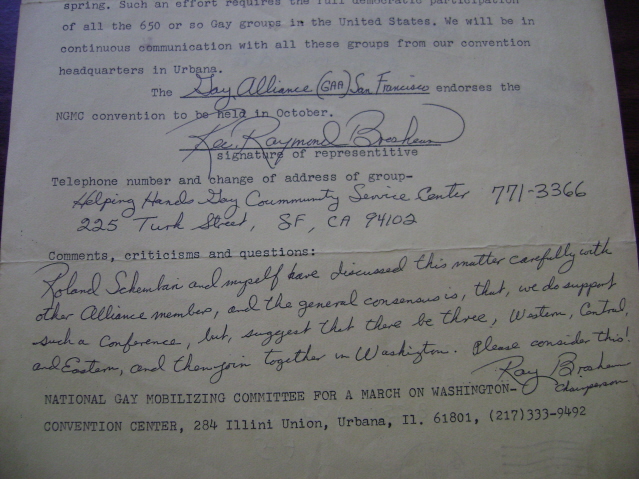 spring. Such an effort requires the full democratic participation
of all the 650 or so Gay groups in the United States. We will be in
continuous communication with all these groups from our convention
headquarters in Urbana.
The Gay Alliance (GAA) San Francisco endorses the
NGMC convention to be held in October.
Rev. Raymond Broshears
signature of representitive
Telephone number and change of address of group-
Helping Hands Gay Community Service Center 771-3366
225 Turk Street, SF, CA 94102
Comments, criticisms and questions:
Roland Schembari and myself have discussed this matter carefully with
other Alliance members, and the general consensus is, that, we do support
such a Conference, but, suggest that there be three, Western, Central,
and Eastern, and then join together in Washington. Please consider this!
Ray Broshears
Chairperson
NATIONAL GAY MOBILIZING COMMITTEE FOR A MARCH ON WASHINGTON-
CONVENTION CENTER, 284 Illini Union, Urbana, Il. 61801, (217)333-9492